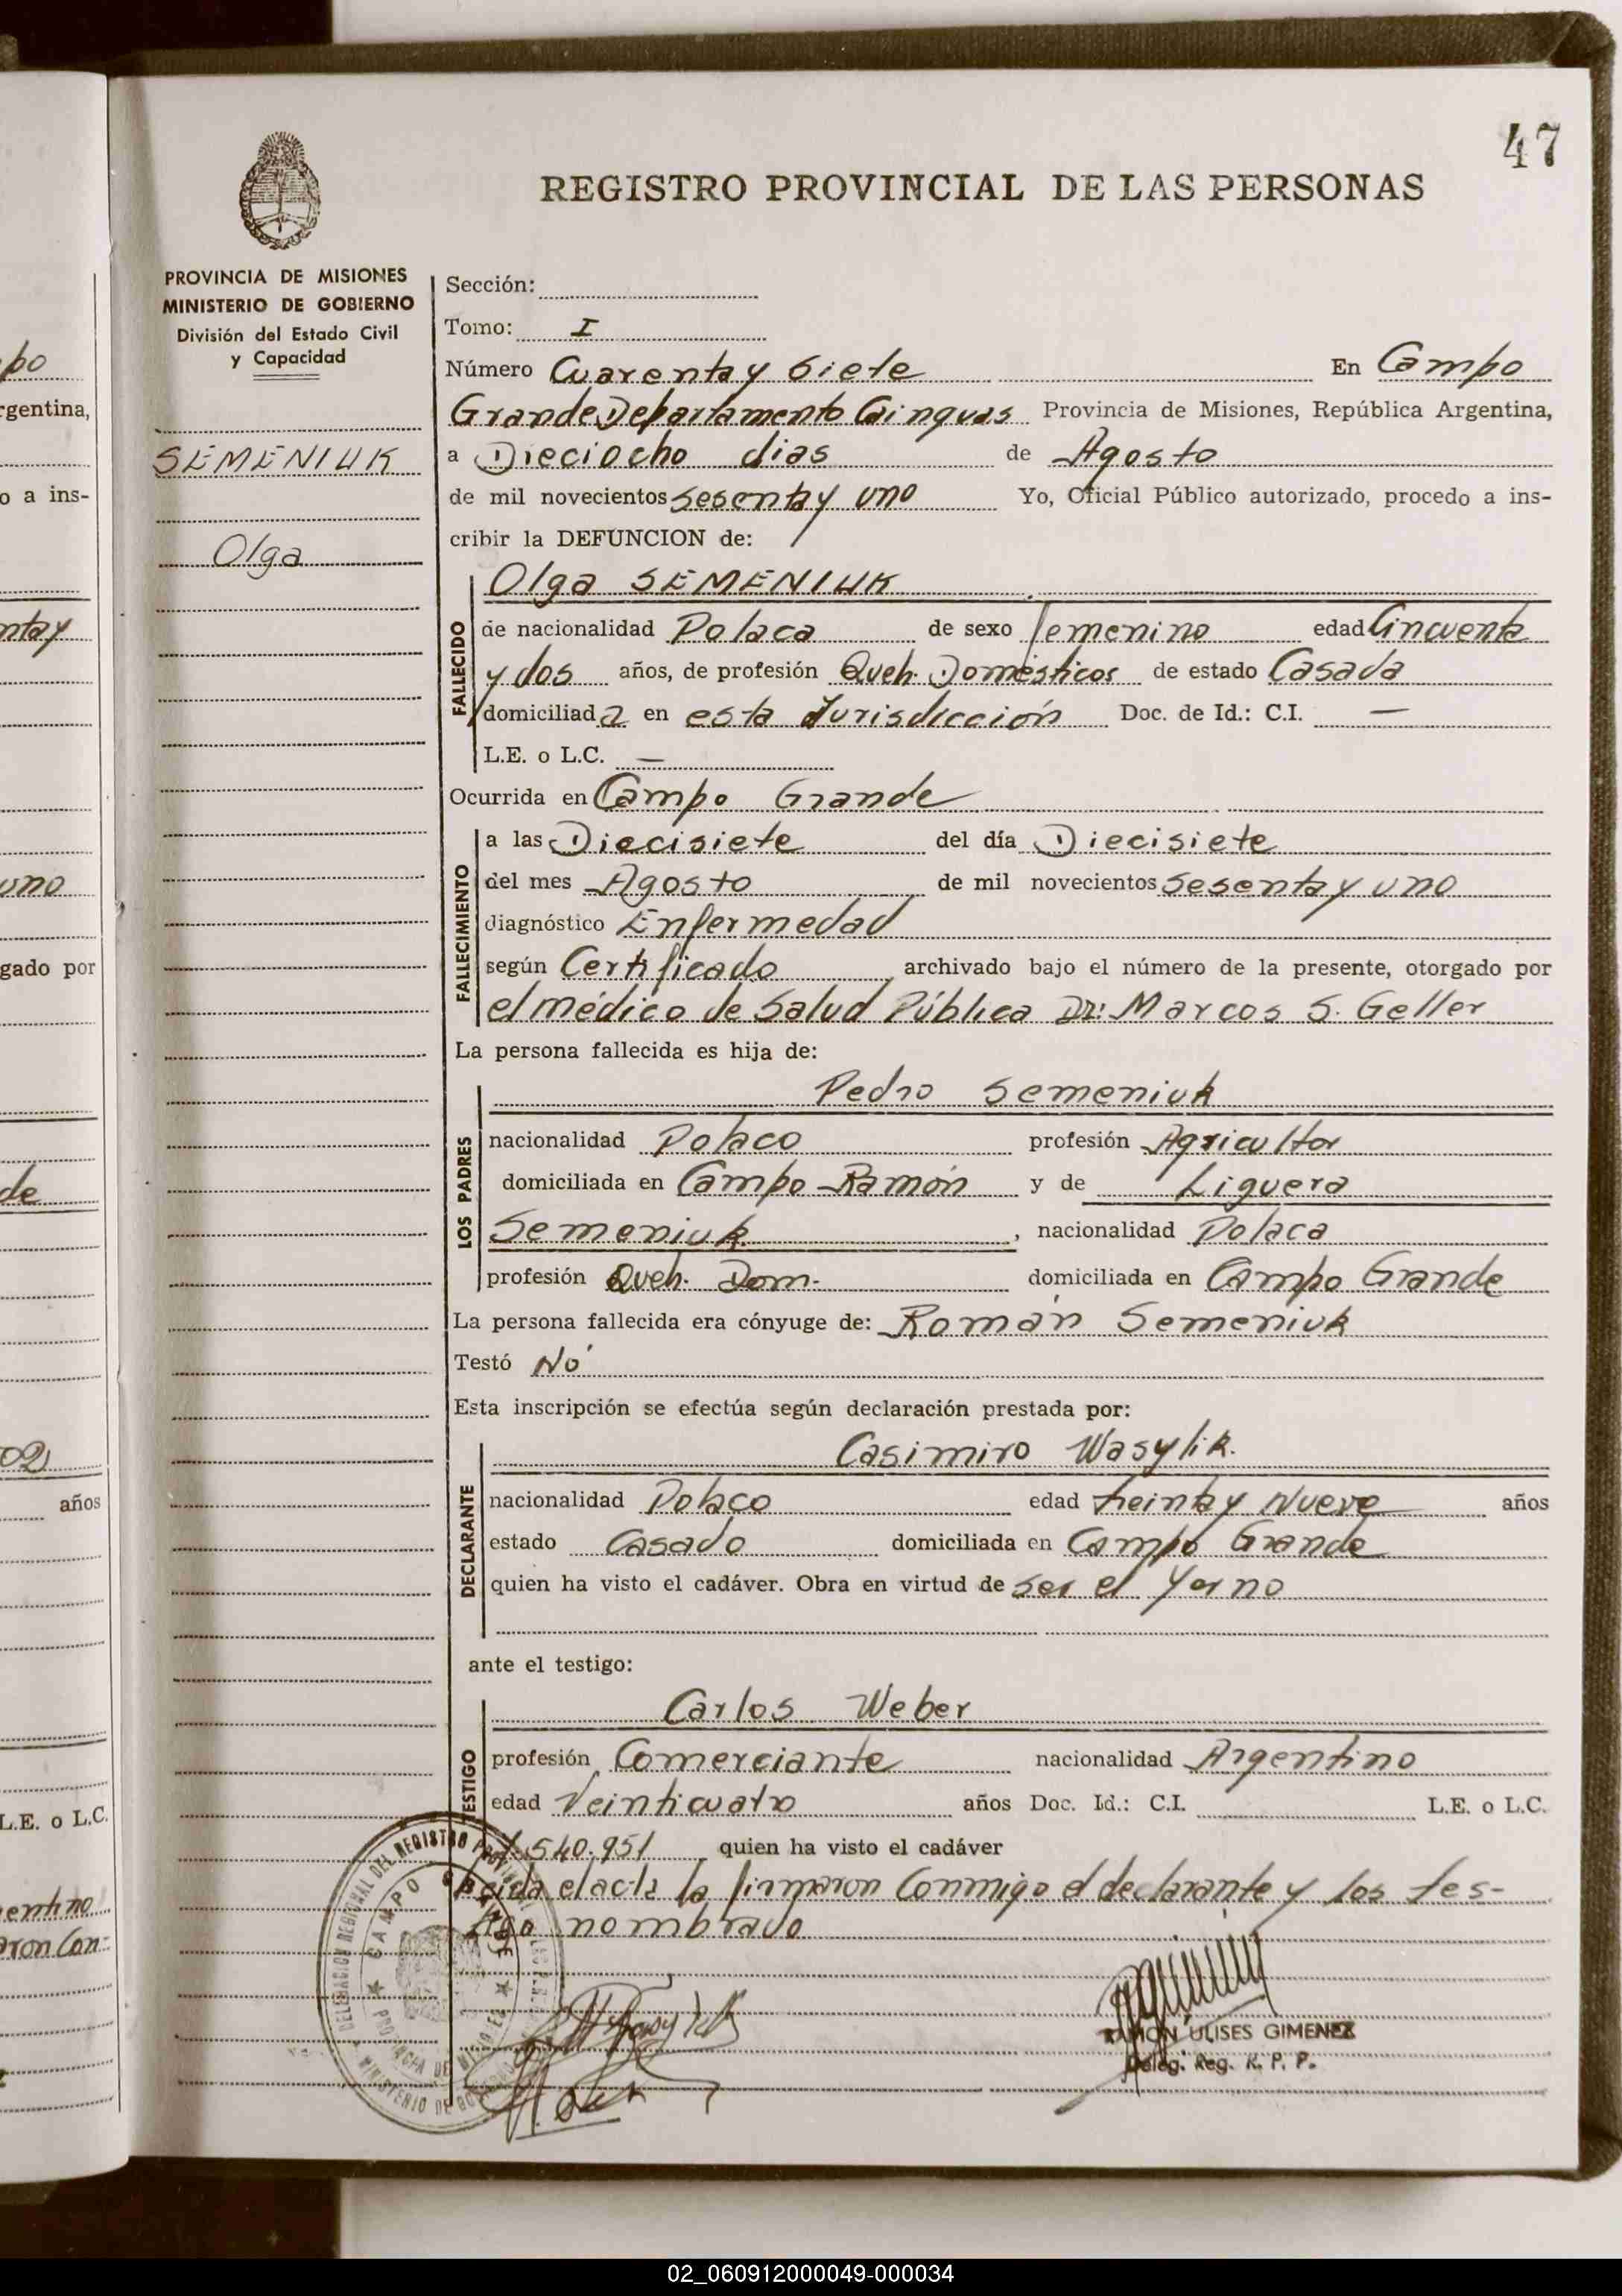 47
REGISTRO PROVINCIAL DE LAS PERSONAS
PROVINCIA DE MISIONES
MINISTERIO DE GOBIERNO
División del Estado Civil
y Capacidad
SEMENIUK
Olga
Sección:
Tomo: I
Número Cuarenta y Siete En Campo
Grande Departamento Cainguas Provincia de Misiones, República Argentina,
a Dieciocho dias de Agosto
de mil novecientos sesenta y uno Yo, Oficial Público autorizado, procedo a ins-
cribir la DEFUNCION de:
FALLECIDO
Olga SEMENIUK
de nacionalidad Polaca de sexo femenino edad Cincuenta
y dos años, de profesión Queh. Domésticos de estado Casada
domiciliada en esta Jurisdicción Doc. de Id.: C.I. —
L.E. o L.C. —
Ocurrida en Campo Grande
FALLECIMIENTO
a las Diecisiete del día Diecisiete
del mes Agosto de mil novecientos sesenta y uno
diagnóstico Enfermedad
según Certificado archivado bajo el número de la presente, otorgado por
el médico de Salud Pública Dr: Marcos S. Geller
La persona fallecida es hija de:
LOS PADRES
Pedro Semeniuk
nacionalidad Polaco profesión Agricultor
domiciliada en Campo Ramón y de Liguera
Semeniuk, nacionalidad Polaca
profesión Queh. Dom. domiciliada en Campo Grande
La persona fallecida era cónyuge de: Román Semeniuk
Testó No
Esta inscripción se efectúa según declaración prestada por:
DECLARANTE
Casimiro Wasylik.
nacionalidad Polaco edad treinta y Nueve años
estado Casado domiciliada en Campo Grande
quien ha visto el cadáver. Obra en virtud de ser el Yerno
ante el testigo:
TESTIGO
Carlos Weber
profesión Comerciante nacionalidad Argentino
edad Veinticuatro años Doc. Id.: C.I. L.E. o L.C.
540.951 quien ha visto el cadáver
Leida el acta la firmaron Conmigo el declarante y los tes-
tigo nombrado
DELEGACION REGIONAL DEL REGISTRO PROVINCIAL
CAMPO GRANDE
PROVINCIA DE MISIONES
MINISTERIO DE GOBIERNO
RAMON ULISES GIMENEZ
Deleg. Reg. R. P. P.
po
rgentina,
o a ins-
nta y
uno
gado por
de
años
L.E. o L.C.
entino
aron Con-
02_060912000049-000034